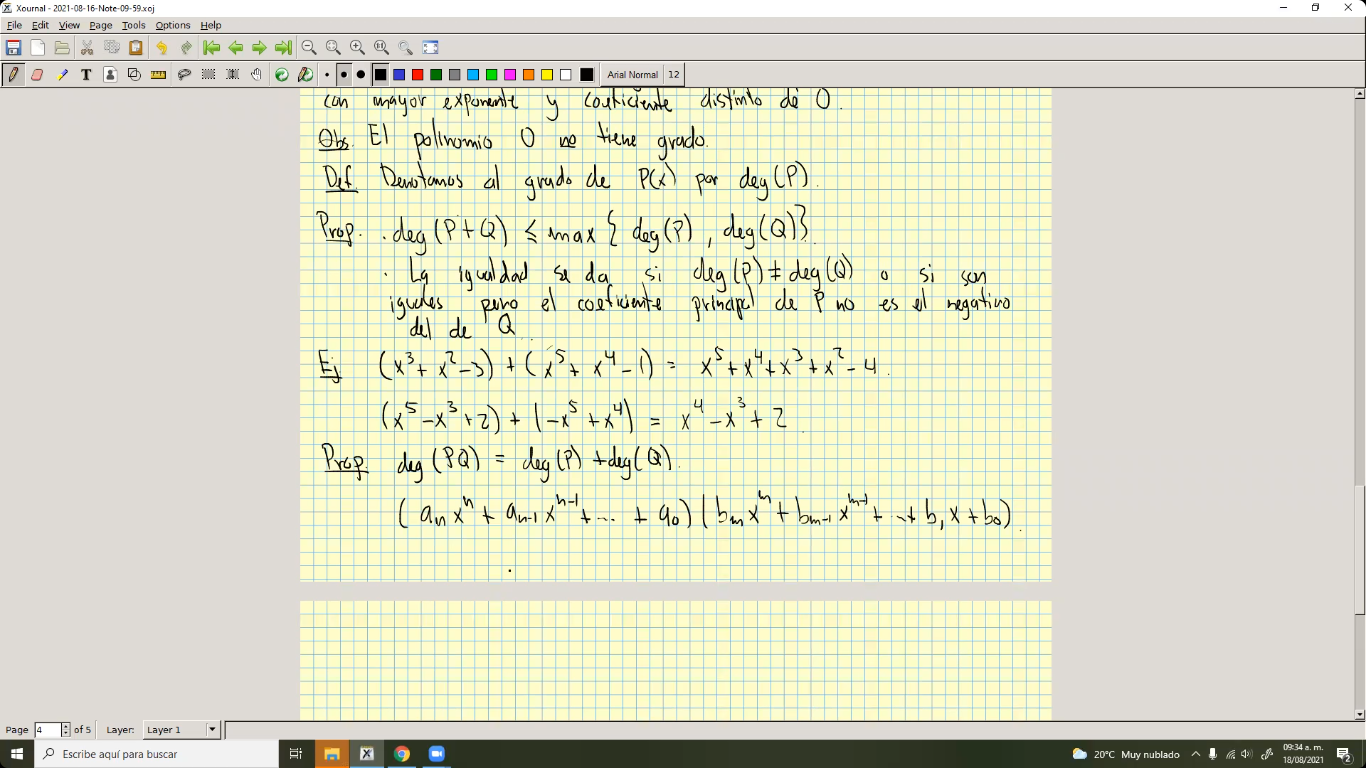 Xournal - 2021-08-16-Note-09-59.xoj
File Edit View Page Tools Options Help
Arial Normal 12
con mayor exponente y coeficiente distinto de 0.
Obs. El polinomio 0 no tiene grado.
Def. Denotamos al grado de P(x) por deg(P).
Prop. · deg(P+Q) ≤ max{ deg(P), deg(Q)}.
· La igualdad se da si deg(P) ≠ deg(Q) o si son
iguales pero el coeficiente principal de P no es el negativo
del de Q.
Ej (x³ + x² - 3) + (x⁵ + x⁴ - 1) = x⁵ + x⁴ + x³ + x² - 4.
(x⁵ - x³ + 2) + (-x⁵ + x⁴) = x⁴ - x³ + 2.
Prop. deg(PQ) = deg(P) + deg(Q).
(aₙxⁿ + aₙ₋₁xⁿ⁻¹ + ... + a₀)(bₘxᵐ + bₘ₋₁xᵐ⁻¹ + ... + b₁x + b₀).
Page 4 of 5 Layer: Layer 1
Escribe aquí para buscar
20°C Muy nublado
09:34 a. m.
18/08/2021
2